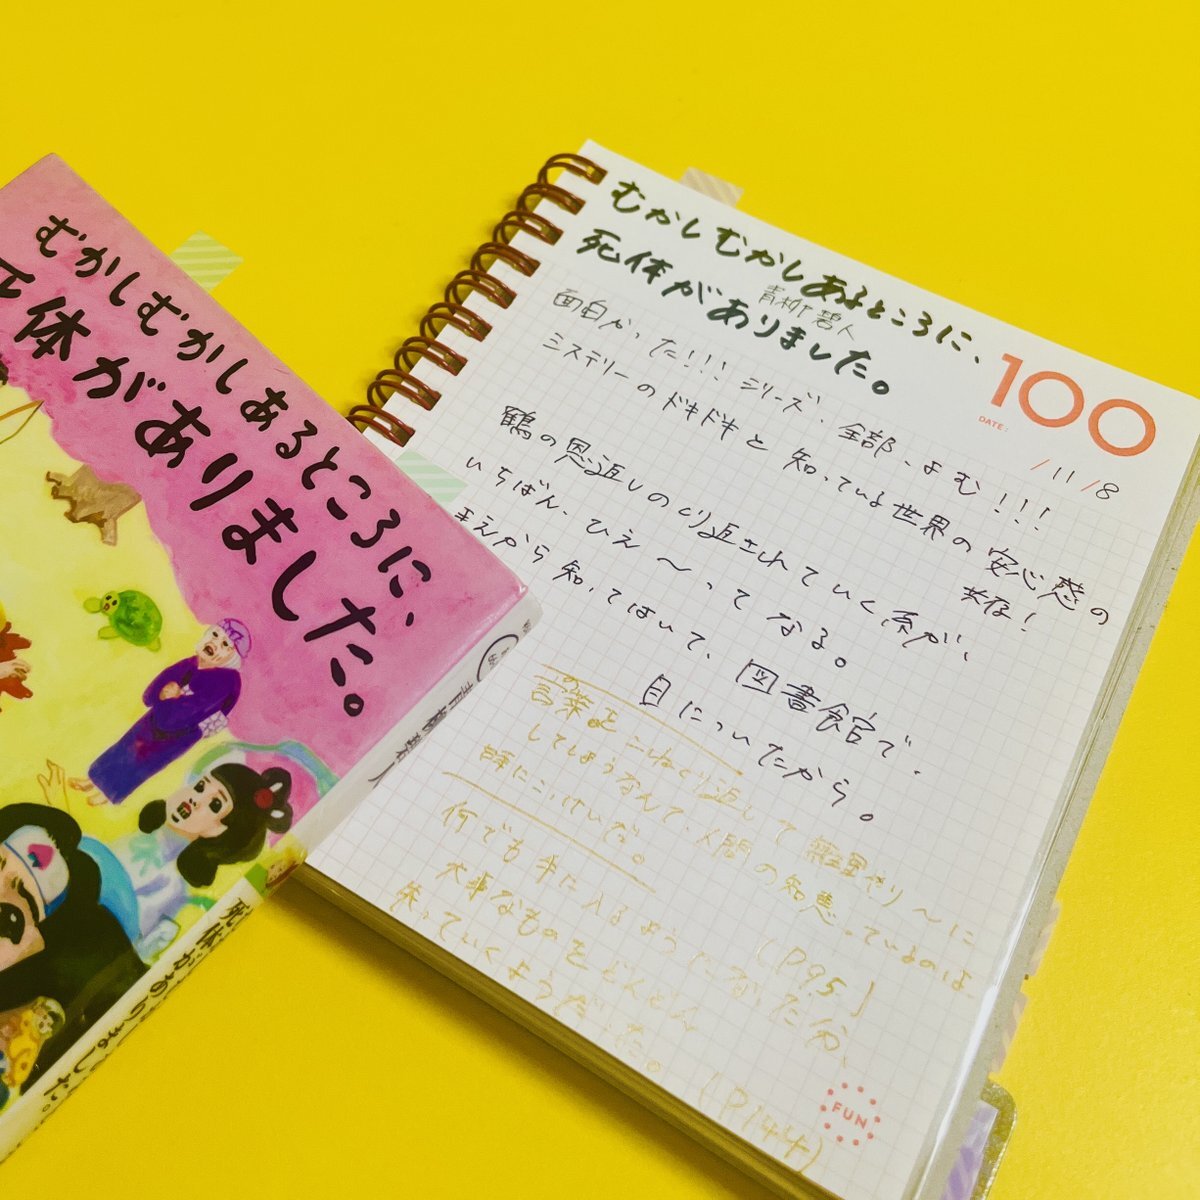 むかしむかしあるところに、
死体がありました。
むかしむかしあるところに、
死体がありました。
青柳碧人
100
DATE:
/11/8
面白かった!!! シリーズ、全部、よむ!!!
ミステリーのドキドキと知っている世界の安心感の
共存!
鶴の恩返しのくり返されていく系が、
いちばん、ひえ〜ってなる。
まえから知ってはいて、図書館で、
目についたから。
言葉を こねくり返して 無理やり〜に
してしまうなんて、人間の知恵っているのは
にこっけいだ。
(P95.)
何でも手に入るようになった分、
大事なものをどんどん
失っていくようだった。
(P144)
FUN
青柳碧人
死体がありました。